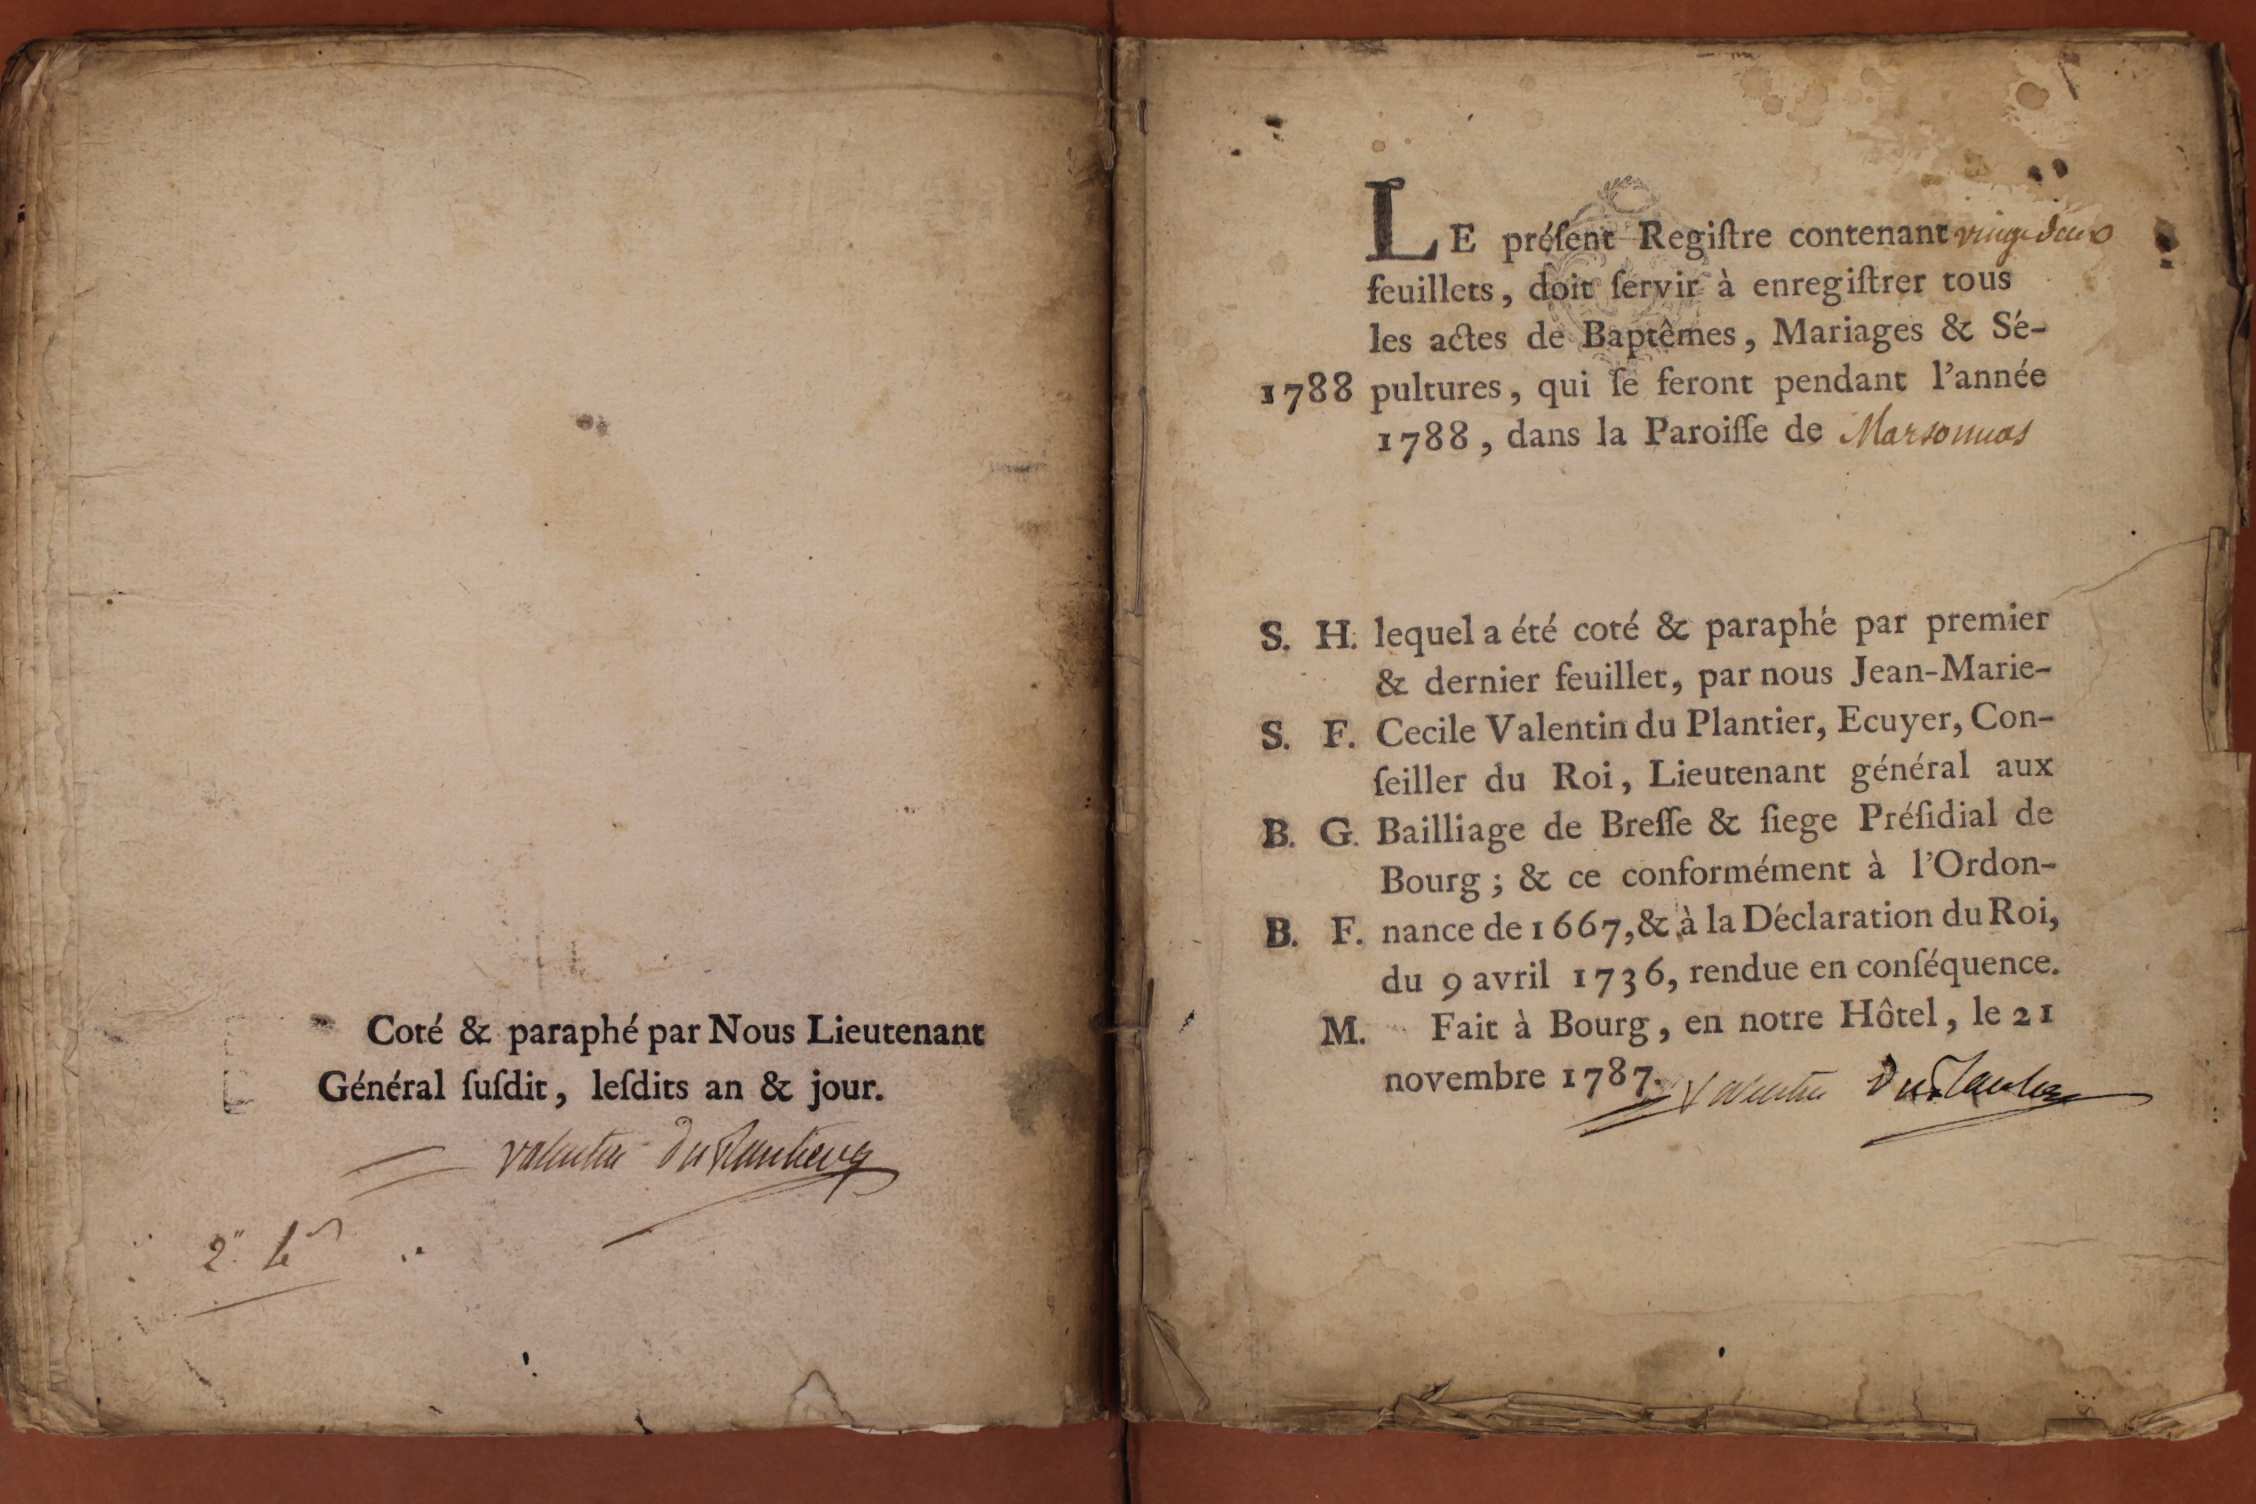 Coté & paraphé par Nous Lieutenant
Général ſuſdit, leſdits an & jour.
Valentin Duplantier
2.
LE préſent Regiſtre contenant vingt deux
feuillets, doit ſervir à enregiſtrer tous
les actes de Baptêmes, Mariages & Sé-
1788 pultures, qui ſe feront pendant l'année
1788, dans la Paroiſſe de Marsonnas
S. H. lequel a été coté & paraphé par premier
& dernier feuillet, par nous Jean-Marie-
S. F. Cecile Valentin du Plantier, Ecuyer, Con-
ſeiller du Roi, Lieutenant général aux
B. G. Bailliage de Breſſe & ſiege Préſidial de
Bourg ; & ce conformément à l'Ordon-
B. F. nance de 1667, & à la Déclaration du Roi,
du 9 avril 1736, rendue en conſéquence.
M. Fait à Bourg, en notre Hôtel, le 21
novembre 1787. Valentin Duplantier